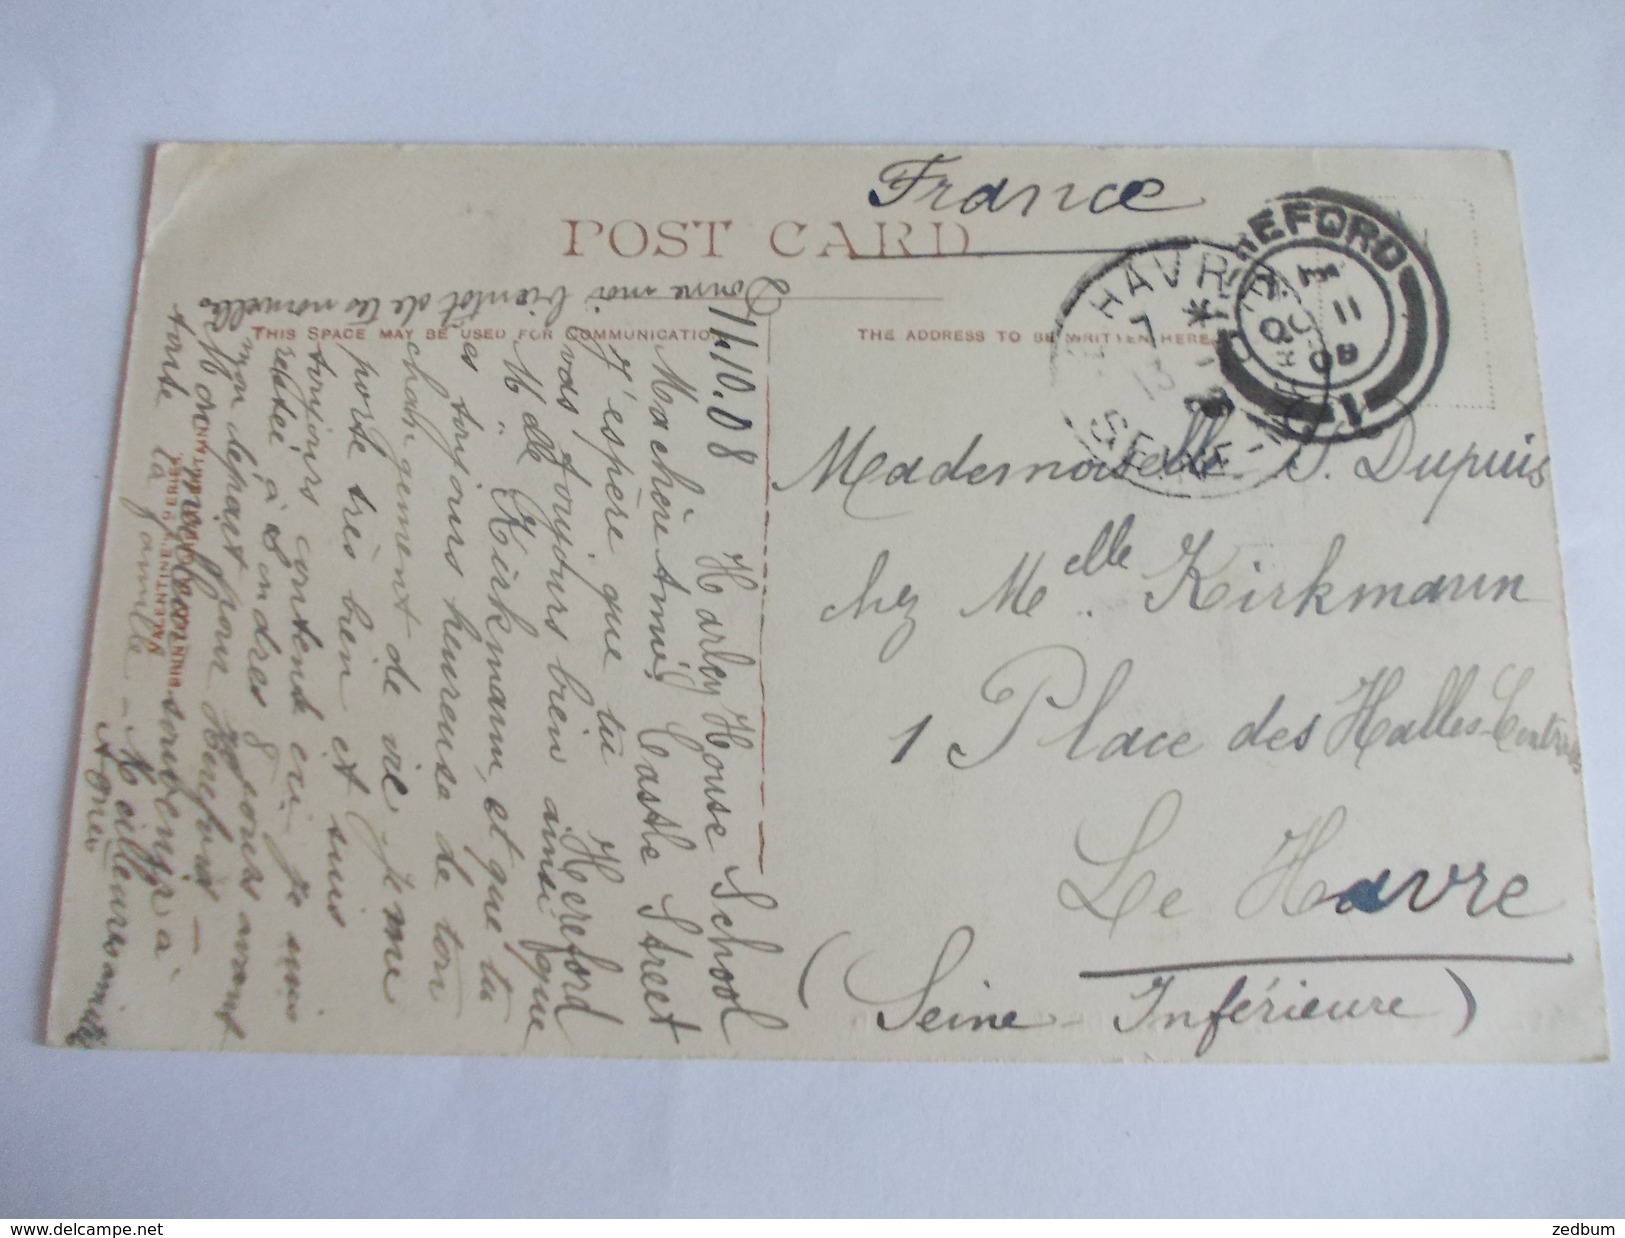 France
POST CARD
THIS SPACE MAY BE USED FOR COMMUNICATION
THE ADDRESS TO BE WRITTEN HERE
HEREFORD
OC 11
08
HAVRE
SEINE
Mademoiselle S. Dupuis
chez Melle Kirkmann
1 Place des Halles-Centrales
Le Havre
(Seine-Inférieure)
Harley House School
11.10.08
Ma chère Amie, Castle Street
J'espère que tu Hereford
vas toujours bien ainsi que
Melle Kirkmann, et que tu
es toujours heureuse de ton
changement de vie. Je me
porte très bien et suis
toujours contente ici je suis
restée à Londres 8 jours avant
mon départ pour Hereford -
Mon meilleur souvenir à
toute la famille - Meilleures amitiés
Agnès
Donne moi bientôt de tes nouvelles
VALENTINE'S SERIES
www.delcampe.net
zedbum